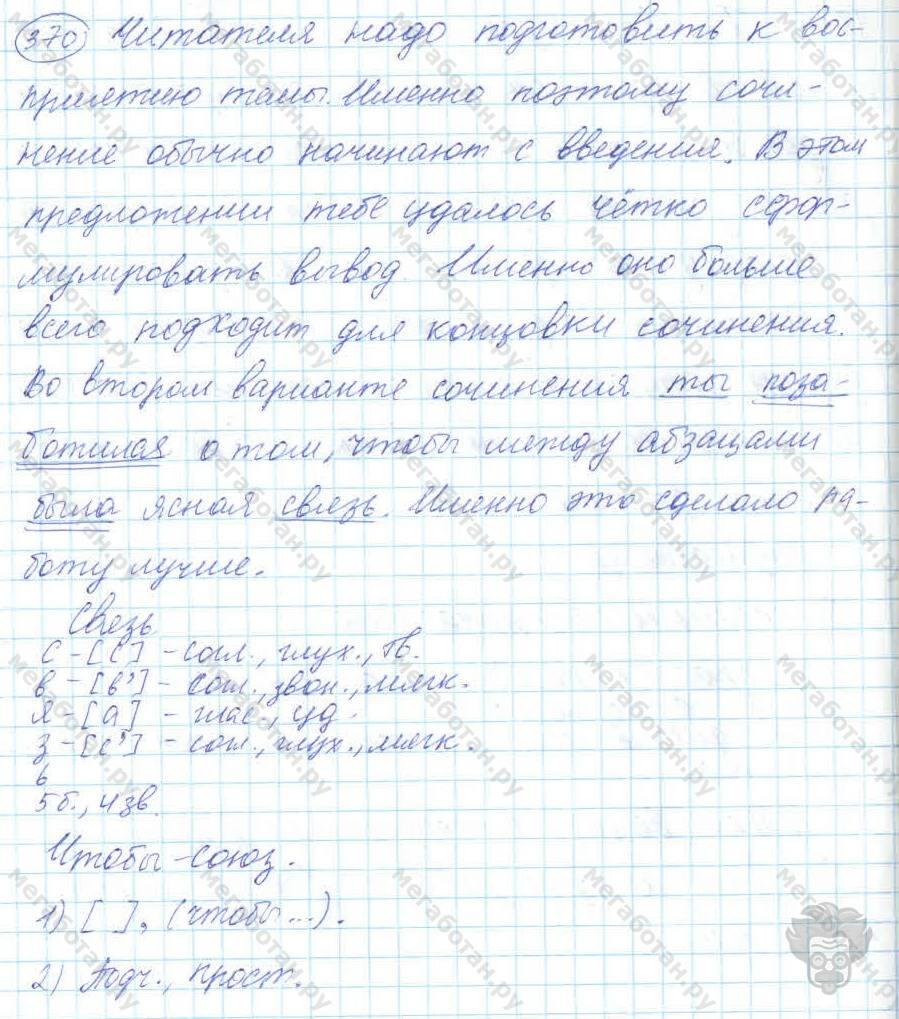 370 Читателя надо подготовить к вос-
приятию темы. Именно поэтому сочи-
нение обычно начинают с введения. В этом
предложении тебе удалось чётко сфор-
мулировать вывод. Именно оно больше
всего подходит для концовки сочинения.
Во втором варианте сочинения ты поза-
ботилась о том, чтобы между абзацами
была ясная связь. Именно это сделало ра-
боту лучше.
Связь
с - [с] - согл., глух., тв.
в - [в'] - согл., звон., мягк.
я - [а] - глас., уд.
з - [с'] - согл., глух., мягк.
ь
5б., 4зв.
Чтобы - союз.
1) [ ], (чтобы...).
2) Подч., прост.
мегаботан.ру